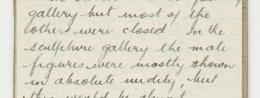 gallery but most of the
others were closed. In the
sculpture gallery the male
figures were mostly shown
in absolute nudity, but
this would be almost